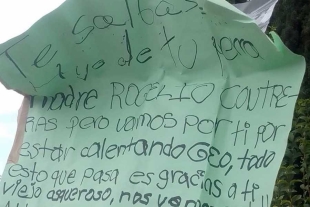 Te salbas
fue de tu perra
madre ROGELIO CONTRE-
RAS pero vamos por ti por
estar calentando GEO, todo
esto que pasa es gracias a ti
viejo asqueroso, nos vemos